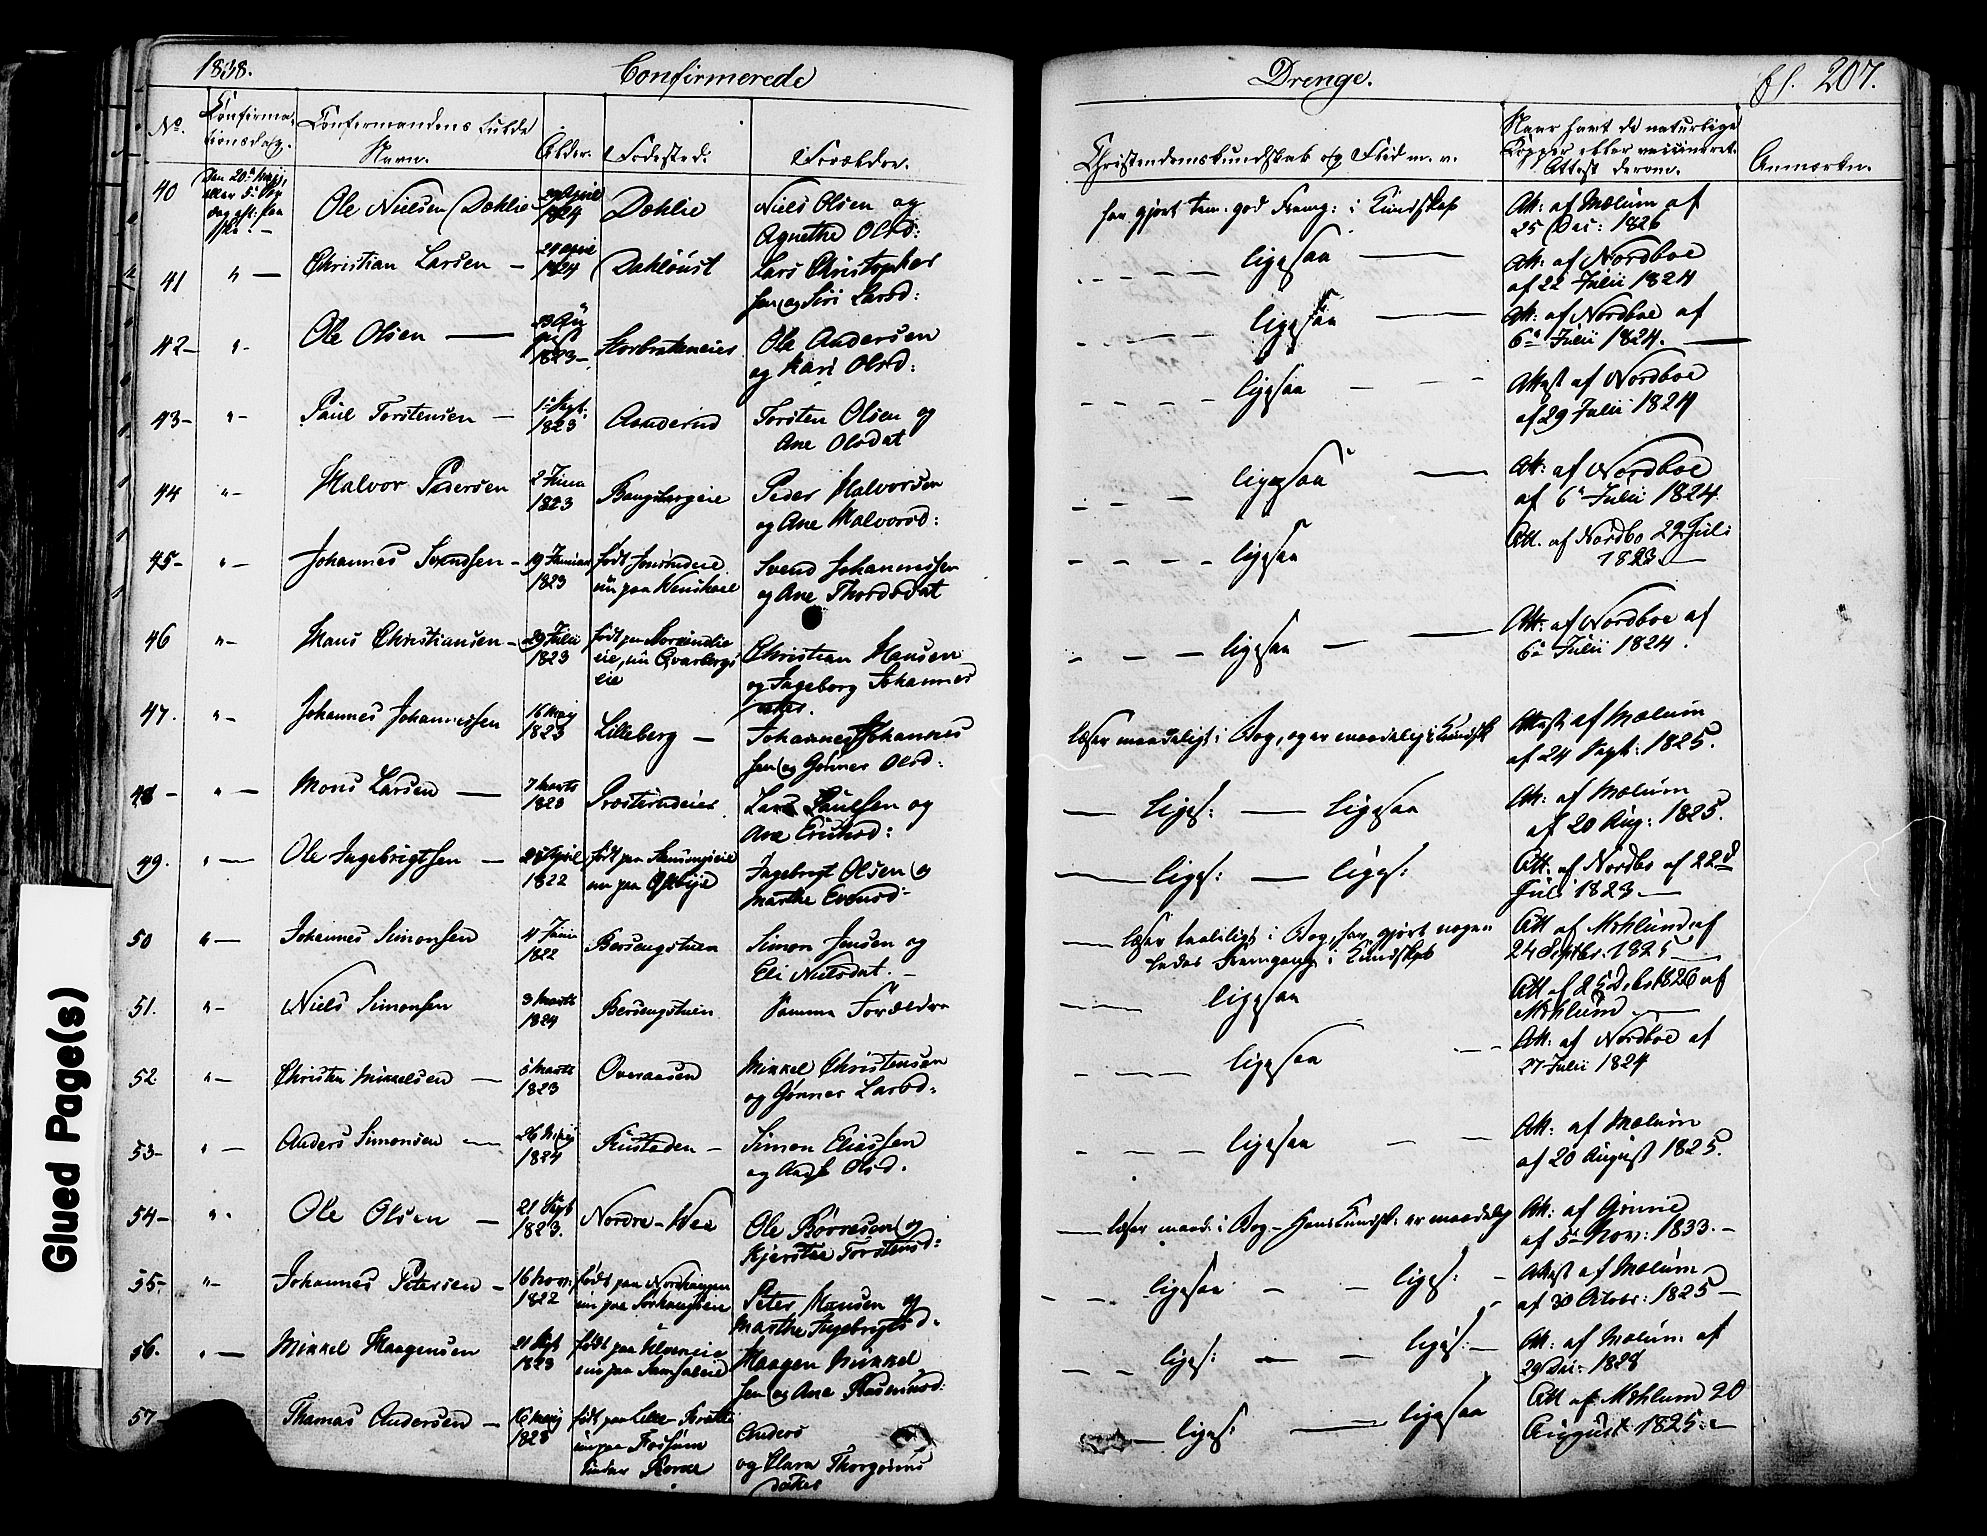 1838.
Confirmerede
Drenge.
fl. 207.
No.
Confirma-
tionsdag.
Confirmandens fulde
Navn.
Alder.
Fødested.
Forældre.
Christendomskundskab og Flid m. v.
Naar havt de naturlige
Kopper eller vaccineret.
Attest derom.
Anmærkn.
40
Ole Nielsen Dæhlie
1824
Dæhlie
Niels Olsen og
Agnethe Olsd:
har gjort tem. god Fremg: i Kundskab
Att: af Mælum af
25 Dec: 1826
41 " —
Christian Larsen —
1824
Lars Christopher
sen og Siri Larsd:
ligesaa
Att: af Nordboe
af 22 Julii 1824
42 — "
Ole Olsen —
1823 —
Ole Andersen
og Kari Olsd:
ligesaa
Att: af Nordboe af
6te Julii 1824. —
43 — "
Paul Torstensen —
1 Sept:
1823
Aanderud
Torsten Olsen og
Ane Olsdat
ligesaa
Attest af Nordboe
af 29 Julii 1824
44 "
Halvor Pedersen
1823
Bangsbergeie
Peder Halvorsen
og Ane Halvorsd:
ligesaa
Att: af Nordboe
af 6te Julii 1824
45 — "
Johannes Svendsen —
1823
Svend Johannessen
og Ane Thordsdat
ligesaa
Att. af Nordbo 22 Juli
1823 —
46 "
Hans Christiansen —
29 Julii
1823
eie, nu Qvarbergs
eie
Christian Hansen
og Ingeborg Johannes
ligesaa
Att: af Nordboe af
6te Julii 1824.
47. "
Johannes Johannessen
16 Maij
1823
Lilleberg —
Johannes Johannes
sen og Gønner Olsd:
læser maadeligt i Bog, og er maadelig i Kundsk
Attest af Mælum
af 24 Sept: 1825.
48 — "
Mons Larsen —
7 Marts
1823
Prosterudeier
Lars Paulsen og
Ane Ericksd:
liges: — ligesaa
Att: af Mælum
af 20 Aug: 1825.
49. "
Ole Ingebrigtsen —
1822
Ingebrigt Olsen og
Marthe Evensd:
liges: — liges:
Att: af Nordbo af 22d
Juli 1823 —
50 "
Johannes Simonsen
4 Junii
1822
Bersengstuen
Simon Jensen og
Eli Nielsdat. —
læser taaleligt i Bog, har gjort nogen
ledes Fremgang i Kundskab
Att af Mæhlum af
24 Septbr. 1825 —
51. "
Niels Simonsen
3 Marts
1824
Bersengstuen
Samme Forældre
ligesaa
Mæhlum —
52. "
Christen Mikkelsen —
5 Marts
1823
Overaasen
Mikkel Christensen
og Gønner Larsd:
ligesaa
Att: af Nordboe af
27 Julii 1824
53 — "
Anders Simonsen —
26 Maij
1824
Rustaden —
Simon Eliassen
og Olsd.
ligesaa
Att: af Mælum
af 20 August 1825.
54 — "
Ole Olsen —
21 Sept
1823.
Nordre-
Ole Børresen og
Kjerstie Torstensd:
læser maad: i Bog — Hans Kundsk: er maadelig
Att: af
af 5te Nov: 1833. —
55 — "
Johannes Petersen —
16 Nov:
1822
Peter Hansen og
Marthe Ingebrigtsd.
ligesaa — liges:
Attest af Mælum
af 30 Octobr: 1825 —
56. "
Mikkel Haagensen
21 Sept
1823
Haagen Mikkel
sen og Ane Rasmusd:
liges: — liges: —
Att: af Mælum af
1828
57 —
Thomas Andersen —
16 Maij
Anders
og Clara Thorgeirs
liges: — ligesaa
Att af Mæhlum 20
August 1825: —
Glued Page(s)